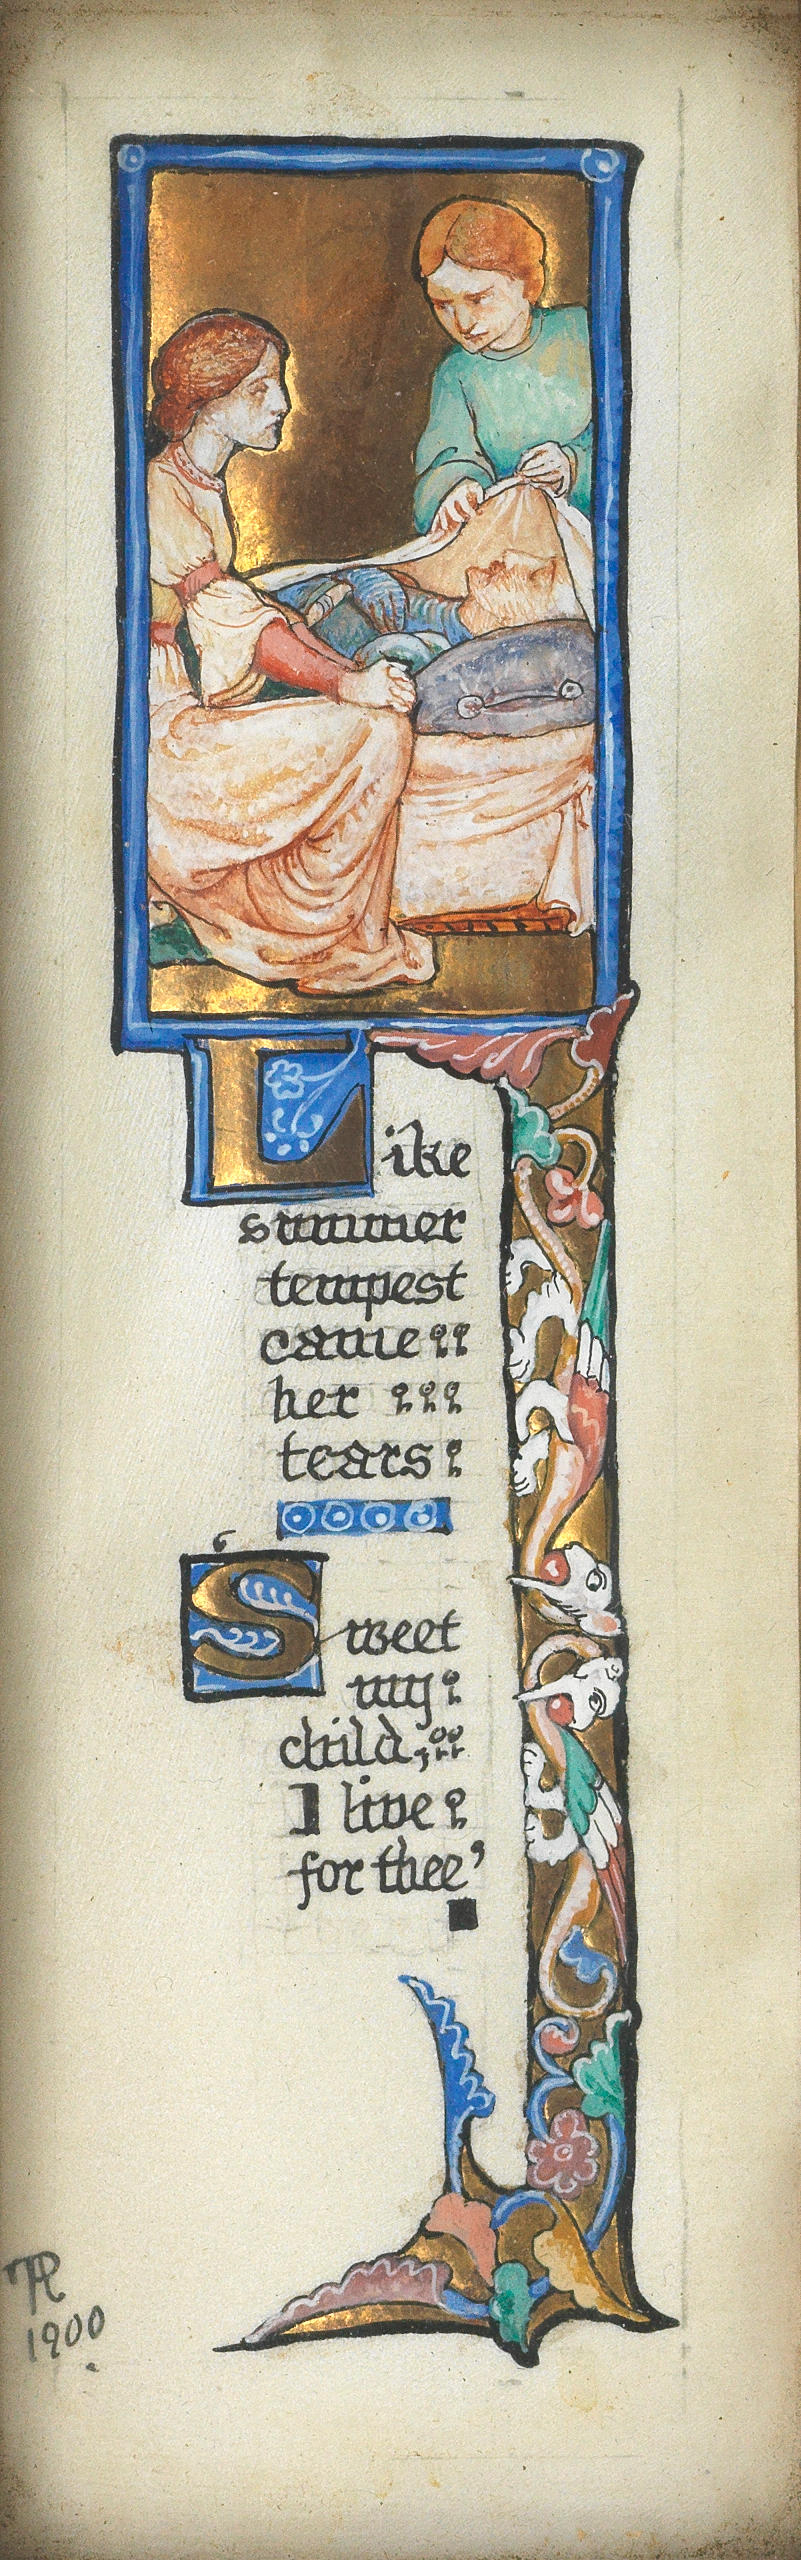 Like
summer
tempest
came
her
tears:
‘Sweet
my
child,
I live
for thee’
1900